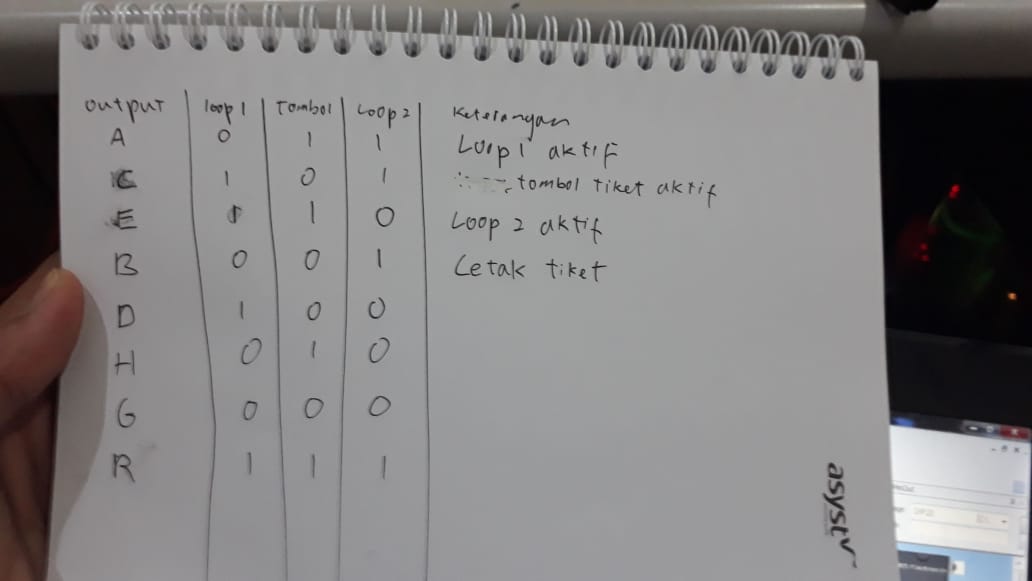 output loop1 Tombol Loop2 Keterangan
A 0 1 1 Loop1 aktif
C 1 0 1 tombol tiket aktif
E 1 1 0 Loop 2 aktif
B 0 0 1 Cetak tiket
D 1 0 0
H 0 1 0
G 0 0 0
R 1 1 1
asyst